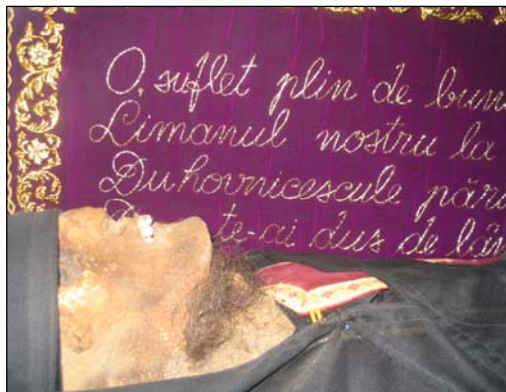 O, suflet plin de bun
Limanul nostru la
Duhovnicescule păr
te-ai dus de lân